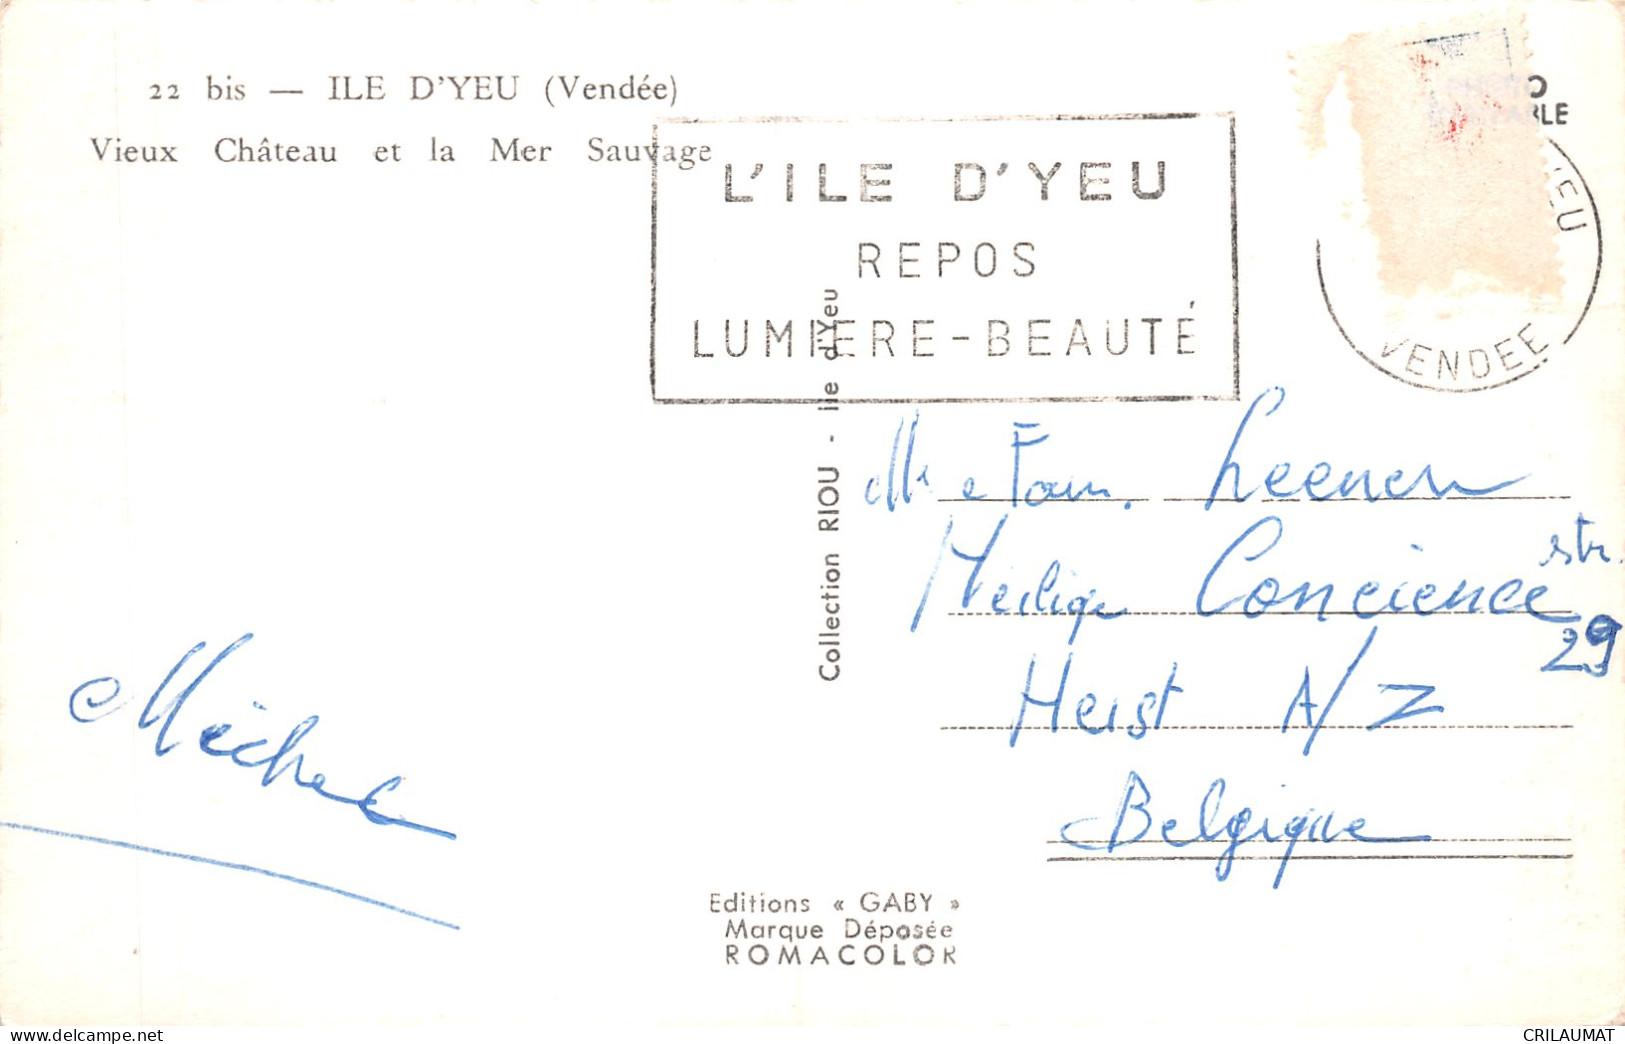 22 bis — ILE D'YEU (Vendée)
Vieux Château et la Mer Sauvage
L'ILE D'YEU
REPOS
LUMIERE-BEAUTÉ
YEU
VENDEE
Collection RIOU - Ile d'Yeu
Mr e Fam. Leenen
Heilige Concience str.
29
Heist A/Z
Belgique
Michel
Editions « GABY »
Marque Déposée
ROMACOLOR
CRILAUMAT